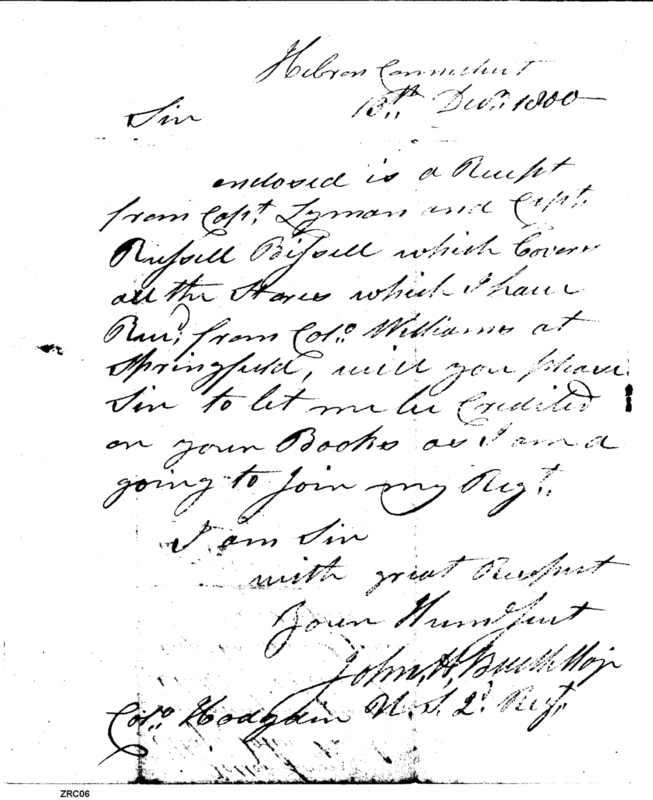 Hebron Connecticut
13th Decr. 1800
Sir
enclosed is a Receipt
from Capt. Lyman and Capt.
Russell Bissell which Covers
all the Stores which I have
Recd. from Colo. Williams at
Springfield, will you please
Sir to let me be Credited
on your Books as I am a
going to Join my Regt.
I am Sir
with great Respect
Your Humb Sert
John H. Buell Majr
Colo. Hodgdon U. S. 2d. Regt.
ZRC06